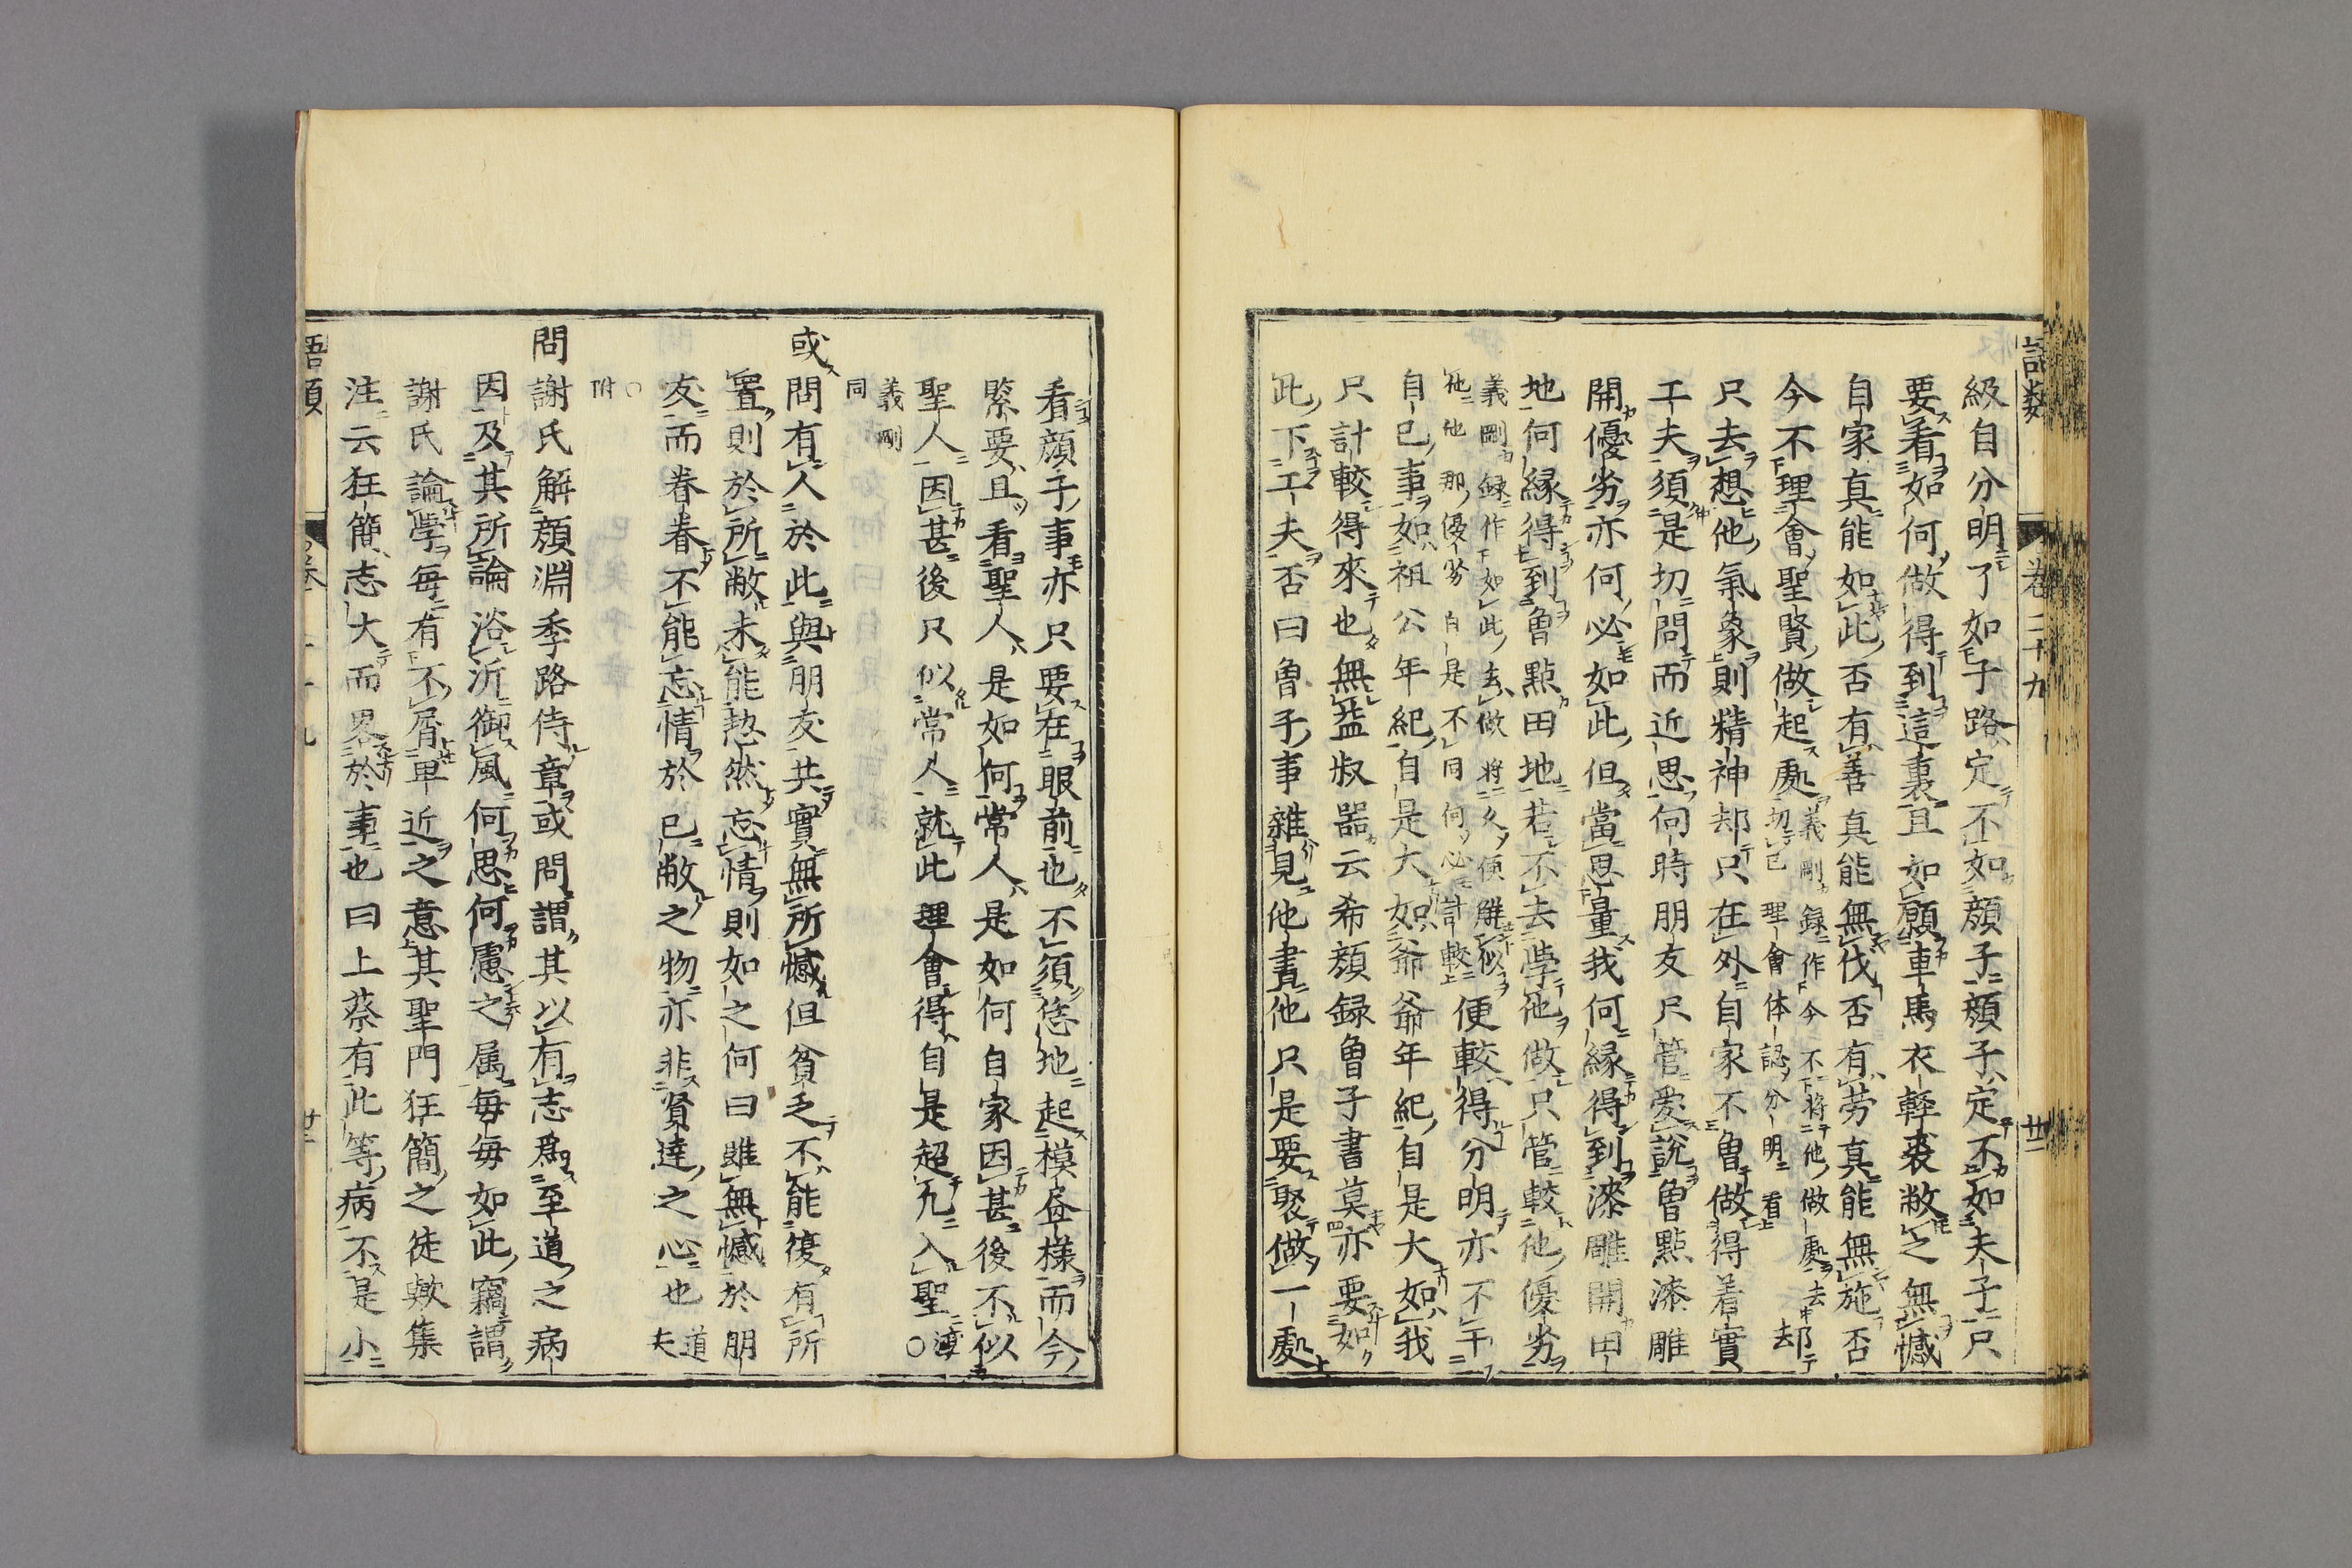 語類 卷二十九 廿二
級自分明了如子路定不如顔子顔子定不如夫子只
要看如何做得到這裏且如願車馬衣輕裘敝之無憾
自家真能如此否有善真能無伐否有勞真能無施否
今不理會聖賢做起處義剛録作今不將他做處去切己理會体認分明看却去
只去想他氣象則精神却只在外自家不曽做得着實
工夫須是切問而近思向時朋友只管愛說曽點漆雕
開優劣亦何必如此但當思量我何縁得到漆雕開田
地何縁得到曽點田地若不去學他做只管較他優劣
義剛録作如此去做將久便解似他他那優劣自是不同何必計較便較得分明亦不干
自己事如祖公年紀自是大如爺爺年紀自是大如我
只計較得來也無益叔器云希顔録曽子書莫亦要如
此下工夫否曰曽子事雜見他書他只是要聚做一處
看顔子事亦只要在眼前也不須恁地起模畫樣而今
緊要且看聖人是如何常人是如何自家因甚後不似
聖人因甚後只似常人就此理會得自是超凡入聖淳○
義剛同
或問有人於此與朋友共實無所憾但貧乏不能復有所
置則於所敝未能恝然忘情則如之何曰雖無憾於朋
友而眷眷不能忘情於已敝之物亦非賢達之心也道夫
○附
問謝氏解顔淵季路侍章或問謂其以有志爲至道之病
因及其所論浴沂御風何思何慮之属每每如此竊謂
謝氏論學每有不屑卑近之意其聖門狂簡之徒歟集
注云狂簡志大而畧於事也曰上蔡有此等病不是小
語類 卷二十九 廿二